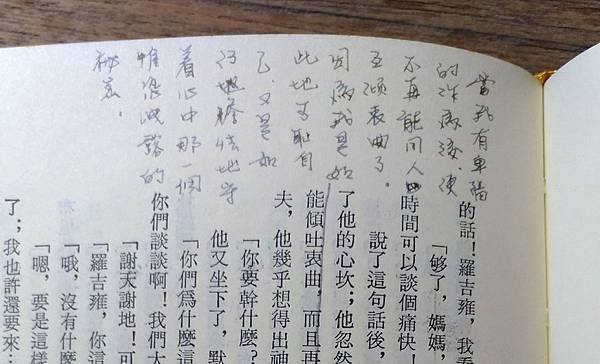 當我有卑陋
的作為後便
不再能同人
互傾衷曲了。
因為我是如
此地可恥自
己，又是如
何地膽怯地守
着心中那一個
惟恐洩露的
祕密。
的話！羅吉雍，我看
「够了，媽媽，
時間可以談個痛快！
說了這句話後，
了他的心坎；他忽然
能傾吐衷曲，而且再
夫，他幾乎想得出神
「你要幹什麼？
他又坐下了，默
「你們爲什麼這
你們談談啊！我們大
「謝天謝地！可
「羅吉雍，你這
「哦，沒有什麼
「嗯，要是這樣
了；我也許還要來